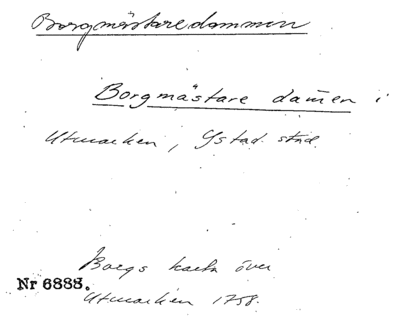 Borgmästaredammen
Borgmästare dam̄en i
Utmarken, Ystad. stad.
Borgs karta över
Nr 6888.
Utmarken 1758.